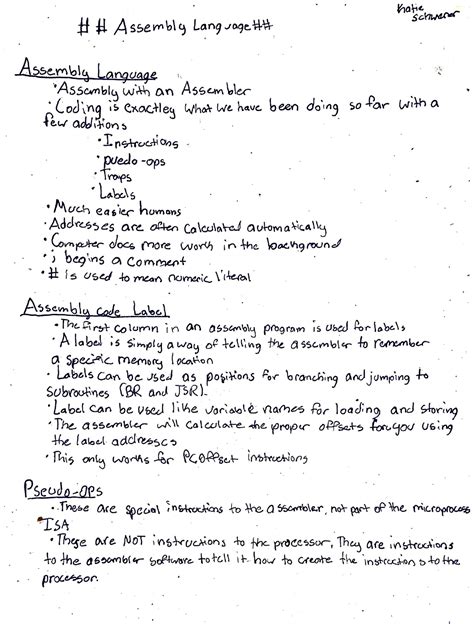 Katie
Schwener
## Assembly Language##
Assembly Language
• Assembly with an Assembler
• Coding is exactley what we have been doing so far with a
few additions
• Instructions
• puedo-ops
• Traps
• Labels
• Much easier humans
• Addresses are often calculated automatically
• Computer does more work in the background
• ; begins a comment
• # is used to mean numeric literal
Assembly code Label
• The first column in an assembly program is used for labels
• A label is simply away of telling the assembler to remember
a specific memory location
• Labels can be used as positions for branching and jumping to
subroutines (BR and JSR).
• Label can be used like variable names for loading and storing
• The assembler will calculate the proper offsets for you using
the label addresses
• This only works for PCOffset instructions
Pseudo-ops
• These are special instructions to the assembler, not part of the microprocess
ISA
• These are NOT instructions to the processor, They are instructions
to the assembler software to tell it how to create the instructions to the
processor.